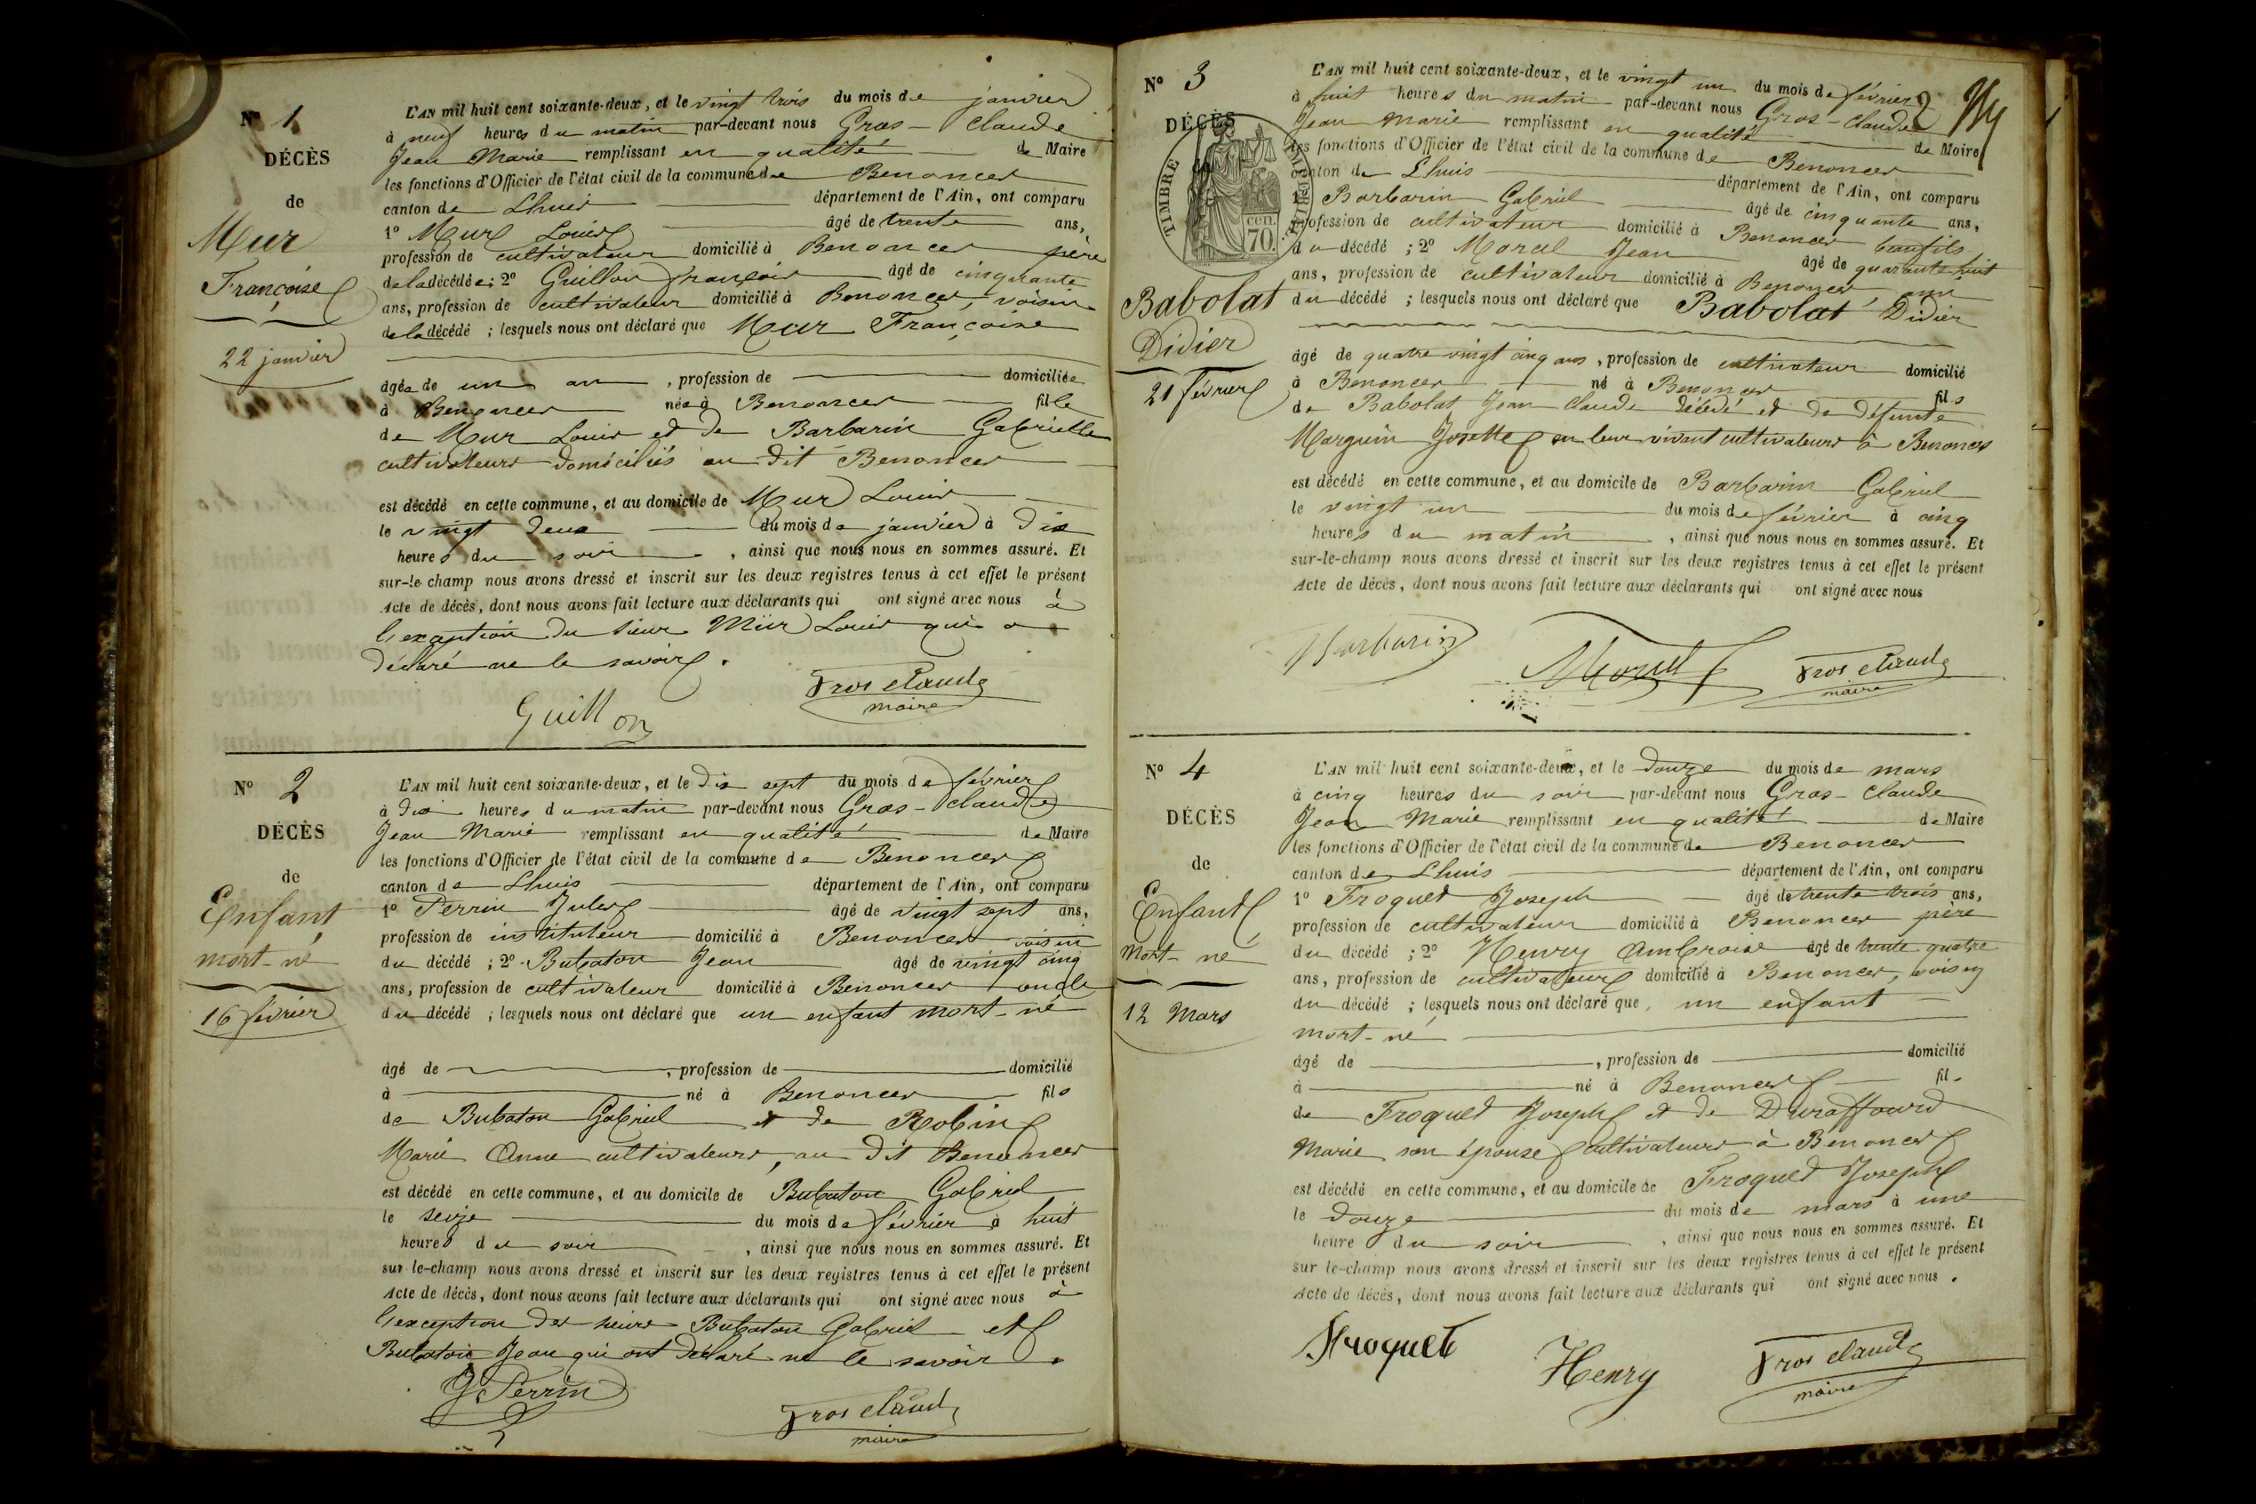 N° 1
DÉCÈS
de
Mur
Françoise
22 janvier
L'AN mil huit cent soixante-deux, et le vingt trois du mois de janvier
à neuf heures du matin par-devant nous Gros-Claude
Jean Marie remplissant en qualité de Maire
les fonctions d'Officier de l'état civil de la commune de Benonces
canton de Lhuis département de l'Ain, ont comparu
1° Mur Louis âgé de trente ans,
profession de cultivateur domicilié à Benonces père
de la décédée; 2° Guillon François âgé de cinquante
ans, profession de cultivateur domicilié à Benonces, voisin
de la décédé ; lesquels nous ont déclaré que Mur Françoise
âgée de un an , profession de domiciliée
à Benonces née à Benonces fille
de Mur Louis et de Barbarin Gabrielle
cultivateurs domiciliés au dit Benonces
est décédé en cette commune, et au domicile de Mur Louis
le vingt deux du mois de janvier à dix
heures du soir , ainsi que nous nous en sommes assuré. Et
sur-le champ nous avons dressé et inscrit sur les deux registres tenus à cet effet le présent
Acte de décès, dont nous avons fait lecture aux déclarants qui ont signé avec nous à
l'exception du sieur Mur Louis qui a
déclaré ne le savoir.
Guillon
Gros Claude
maire
N° 2
DÉCÈS
de
Enfant
mort-né
16 février
L'AN mil huit cent soixante-deux, et le dix sept du mois de février
à dix heures du matin par-devant nous Gros-Claude
Jean Marie remplissant en qualité de Maire
les fonctions d'Officier de l'état civil de la commune de Benonces
canton de Lhuis département de l'Ain, ont comparu
1° Perrin Jules âgé de vingt sept ans,
profession de instituteur domicilié à Benonces voisin
du décédé ; 2° Bubaton Jean âgé de vingt cinq
ans, profession de cultivateur domicilié à Benonces oncle
du décédé ; lesquels nous ont déclaré que un enfant mort-né
âgé de , profession de domicilié
à né à Benonces fils
de Bubaton Gabriel et de Robin
Marie Anne cultivateurs, au dit Benonces
est décédé en cette commune, et au domicile de Bubaton Gabriel
le seize du mois de février à huit
heures du soir , ainsi que nous nous en sommes assuré. Et
sur le-champ nous avons dressé et inscrit sur les deux registres tenus à cet effet le présent
Acte de décès, dont nous avons fait lecture aux déclarants qui ont signé avec nous à
l'exception des sieurs Bubaton Gabriel et
Bubaton Jean qui ont déclaré ne le savoir.
J. Perrin
Gros Claude
maire
N° 3
DÉCÈS
TIMBRE IMPÉRIAL
70 cen.
Babolat
Didier
21 février
2
L'AN mil huit cent soixante-deux, et le vingt un du mois de février
à huit heures du matin par-devant nous Gros-Claude
Jean Marie remplissant en qualité de Maire
les fonctions d'Officier de l'état civil de la commune de Benonces
canton de Lhuis département de l'Ain, ont comparu
1° Barbarin Gabriel âgé de cinquante ans,
profession de cultivateur domicilié à Benonces beaufils
du décédé ; 2° Morel Jean âgé de quarante huit
ans, profession de cultivateur domicilié à Benonces ami
du décédé ; lesquels nous ont déclaré que Babolat Didier
âgé de quatre vingt cinq ans, profession de cultivateur domicilié
à Benonces né à Benonces fils
de Babolat Jean Claude décédé et de défunte
Marguin Josette en leur vivant cultivateurs à Benonces
est décédé en cette commune, et au domicile de Barbarin Gabriel
le vingt un du mois de février à cinq
heures du matin , ainsi que nous nous en sommes assuré. Et
sur-le-champ nous avons dressé et inscrit sur les deux registres tenus à cet effet le présent
Acte de décès, dont nous avons fait lecture aux déclarants qui ont signé avec nous
Barbarin
Morel
Gros Claude
maire
N° 4
DÉCÈS
de
Enfant
mort-né
12 Mars
L'AN mil huit cent soixante-deux, et le douze du mois de mars
à cinq heures du soir par-devant nous Gros-Claude
Jean Marie remplissant en qualité de Maire
les fonctions d'Officier de l'état civil de la commune de Benonces
canton de Lhuis département de l'Ain, ont comparu
1° Froquet Joseph âgé de trente trois ans,
profession de cultivateur domicilié à Benonces père
du décédé ; 2° Henry Ambroise âgé de trente quatre
ans, profession de cultivateur domicilié à Benonces, voisin
du décédé ; lesquels nous ont déclaré que un enfant
mort-né
âgé de , profession de domicilié
à né à Benonces fils
de Froquet Joseph et de Duraffourd
Marie son épouse cultivateurs à Benonces
est décédé en cette commune, et au domicile de Froquet Joseph
le douze du mois de mars à une
heure du soir , ainsi que nous nous en sommes assuré. Et
sur le-champ nous avons dressé et inscrit sur les deux registres tenus à cet effet le présent
Acte de décès, dont nous avons fait lecture aux déclarants qui ont signé avec nous.
Froquet
Henry
Gros Claude
maire